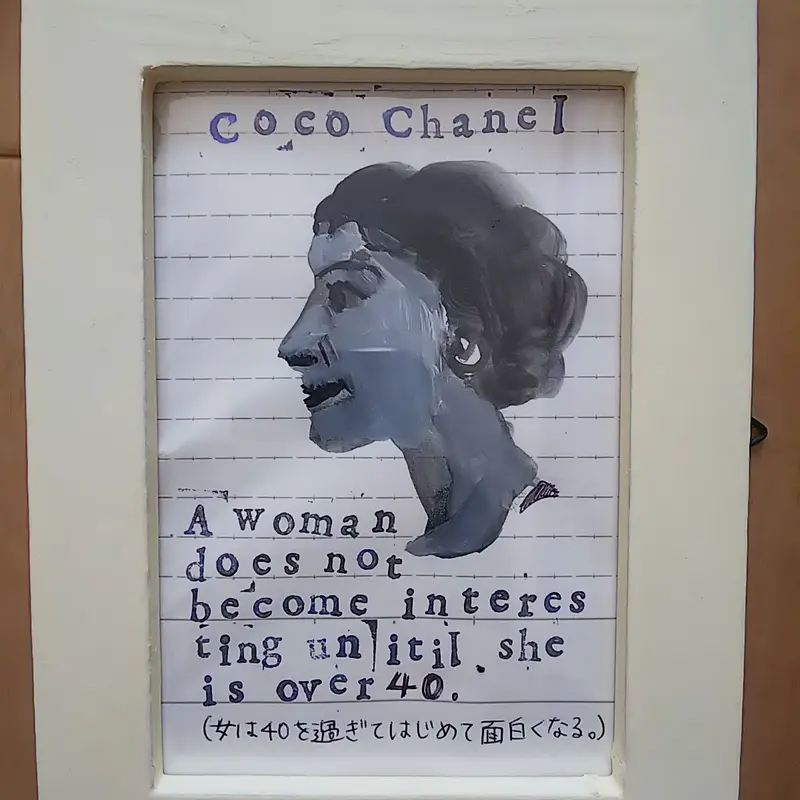 Coco Chanel
A woman
does not
become interes
ting un itil she
is over 40.
(女は40を過ぎてはじめて面白くなる。)